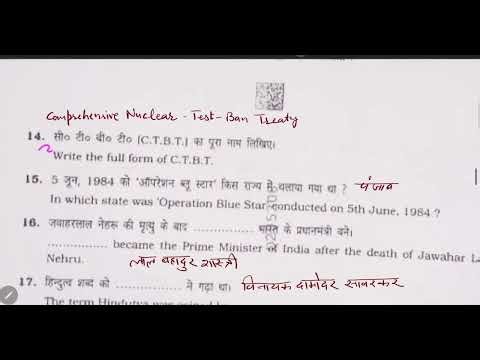 Comprehensive Nuclear - Test - Ban Treaty
14. सी० टी० बी० टी० (C.T.B.T.) का पूरा नाम लिखिए।
Write the full form of C.T.B.T.
15. 5 जून, 1984 को 'ऑपरेशन ब्लू स्टार' किस राज्य में चलाया गया था ? पंजाब
In which state was 'Operation Blue Star' conducted on 5th June, 1984 ?
16. जवाहरलाल नेहरू की मृत्यु के बाद ............... भारत के प्रधानमंत्री बने।
............... became the Prime Minister of India after the death of Jawahar
Nehru. लाल बहादुर शास्त्री
17. हिन्दुत्व शब्द को ............... ने गढ़ा था। विनायक दामोदर सावरकर
The term Hindutva was